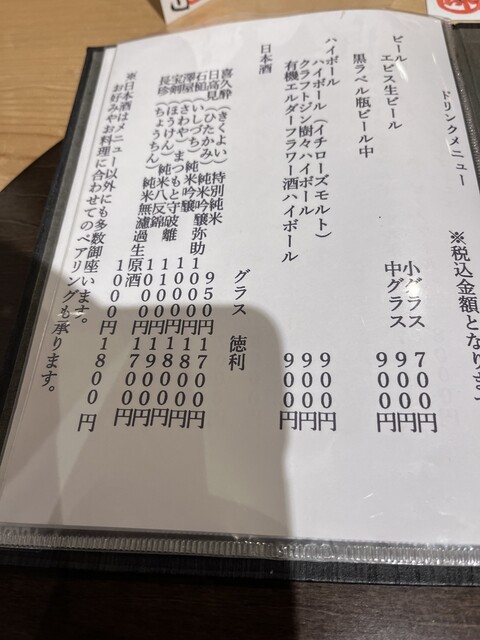 ドリンクメニュー ※税込金額となります
ビール
エビス生ビール 小グラス 700円
中グラス 900円
黒ラベル瓶ビール中 900円
ハイボール
ハイボール(イチローズモルト) 900円
クラフトジン樹々ハイボール 900円
有機エルダーフラワー酒ハイボール 900円
日本酒 グラス 徳利
喜久酔(きくよい)特別純米 950円 1700円
日高見(ひたかみ)純米吟醸弥助 1000円 1800円
石槌(いしづち)純米吟醸 1000円 1800円
澤屋(さわや)まつもと守破離 1100円 1900円
宝剣(ほうけん)純米八反錦 1000円 1700円
長珍(ちょうちん)純米無濾過生原酒 1000円 1800円
※日本酒はメニュー以外にも多数御座います。
お好みやお料理に合わせてのペアリングも承ります。